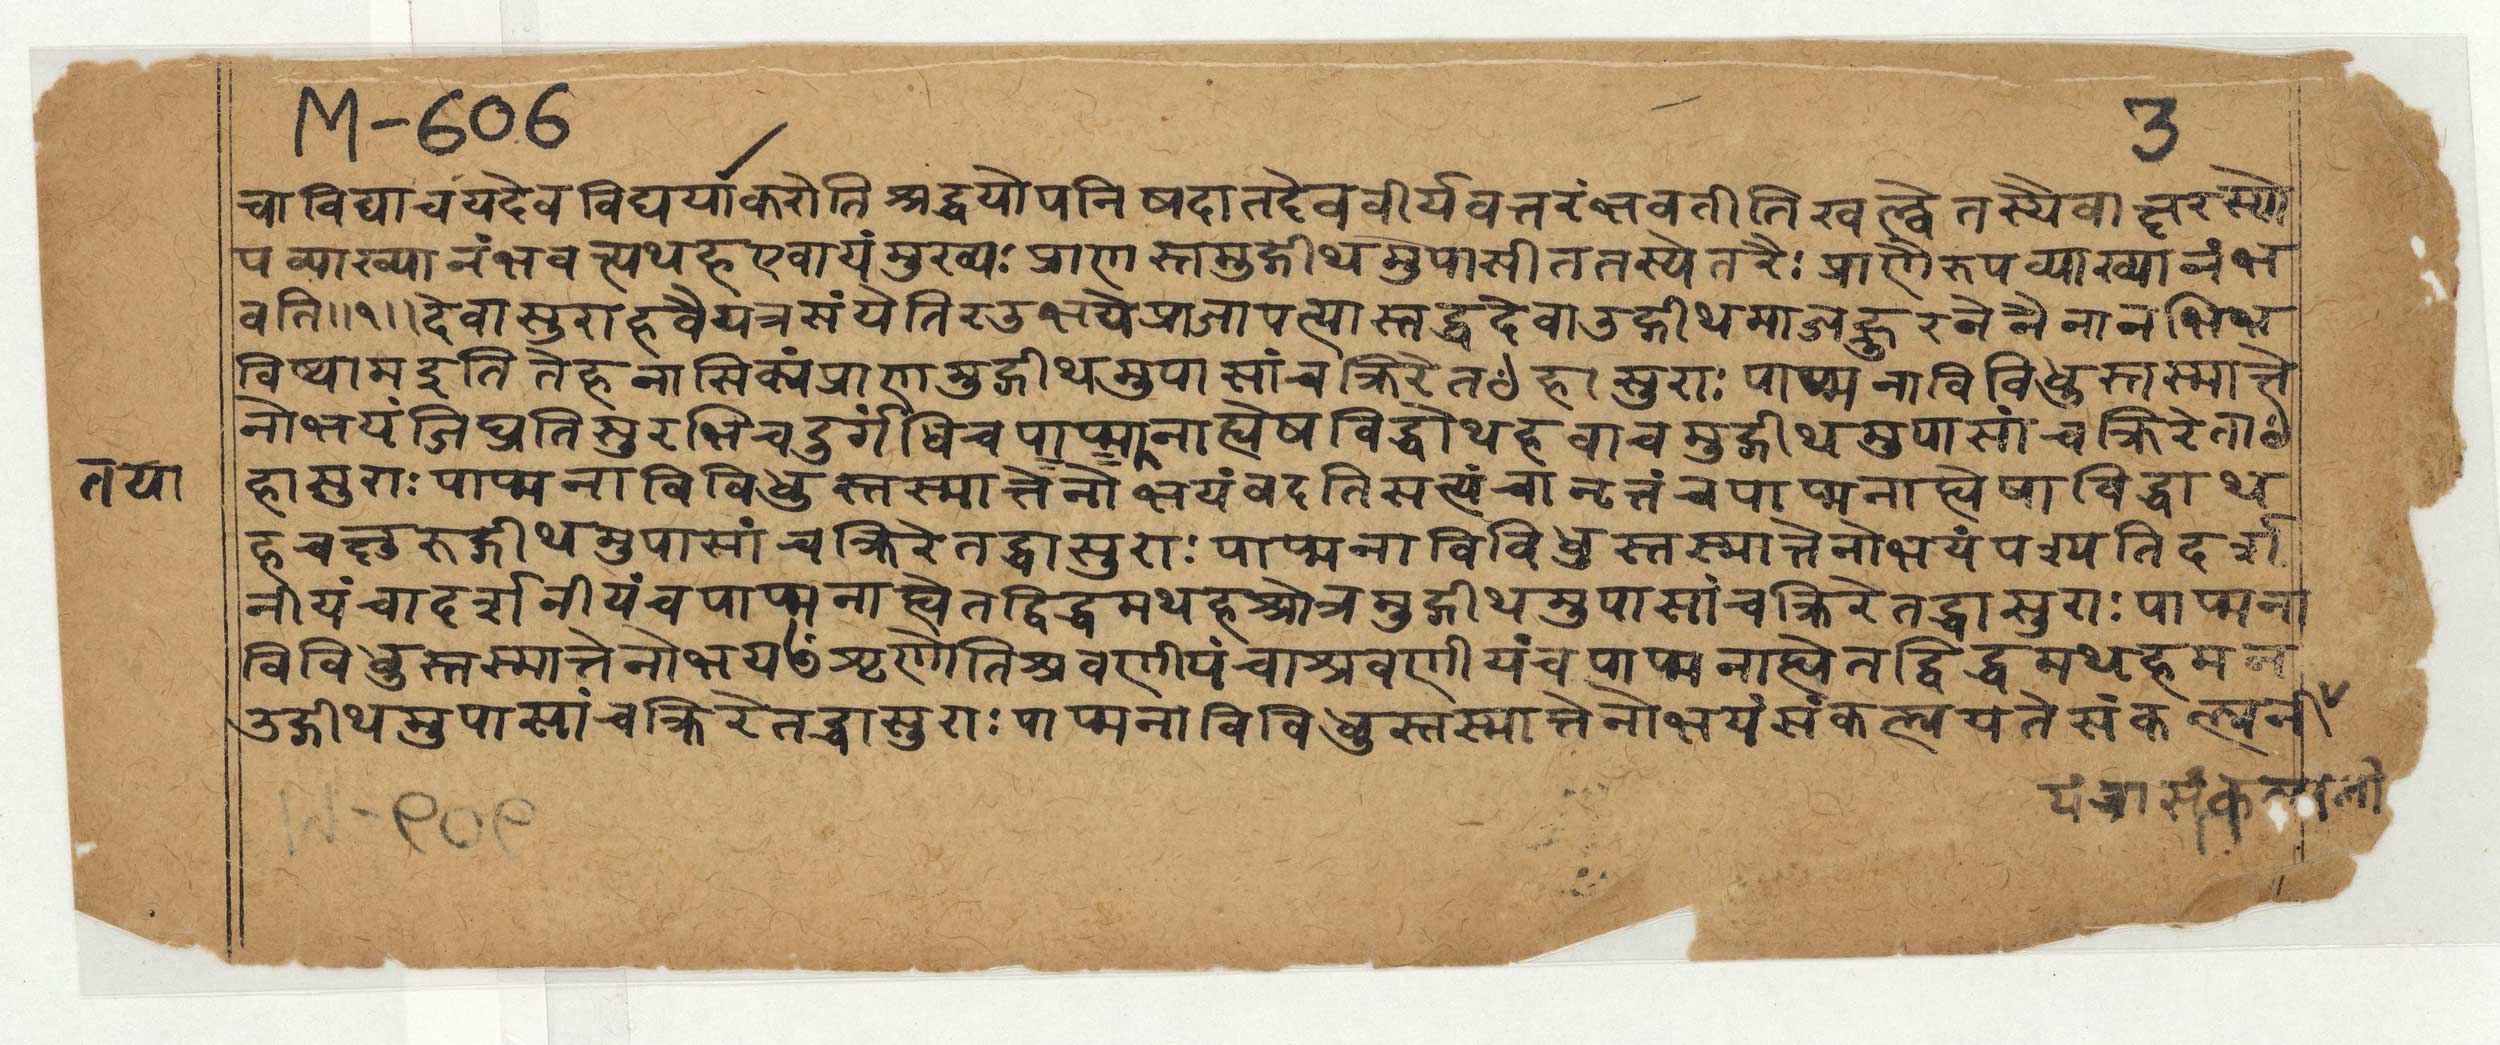 M-606
3
चाविद्याचयदेवविद्ययाकरोतिश्रद्धयोपनिषदातदेववीर्यवत्तरंभवतीतिखल्वेतस्यैवाक्षरस्यो
पव्याख्यानंभवत्यथहएवायंमुख्यः प्राणस्तमुद्गीथमुपासीततस्येतरैः प्राणैरुपव्याख्यानंभ
वति॥१॥देवासुराहवैयत्रसंयेतिरउभयेप्राजापत्यास्तद्धदेवाउद्गीथमाजह्रुरनेनैनानभिभ
विष्यामइति तेहनासिक्यंप्राणमुद्गीथमुपासांचक्रिरेतꣳहासुराः पाप्मनाविविधुस्तस्मात्ते
नोभयंजिघ्रतिसुरभिचदुर्गंधिचपाप्मनाह्येषविद्धोथहवाचमुद्गीथमुपासांचक्रिरेताꣳ
तया
हासुराः पाप्मनाविविधुस्तस्मात्तेनोभयंवदतिसत्यंचानृतंचपाप्मनाह्येषाविद्धाथ
हचक्षुरुद्गीथमुपासांचक्रिरेतद्धासुराः पाप्मनाविविधुस्तस्मात्तेनोभयंपश्यतिदर्श
नीयंचादर्शनीयंचपाप्मनाह्येतद्विद्धमथहश्रोत्रमुद्गीथमुपासांचक्रिरेतद्धासुराः पाप्मना
विविधुस्तस्मात्तेनोभयꣳशृणोतिश्रवणीयंचाश्रवणीयंचपाप्मनाह्येतद्विद्धमथहमन
उद्गीथमुपासांचक्रिरेतद्धासुराः पाप्मनाविविधुस्तस्मात्तेनोभयंसंकल्पयतेसंकल्पनी
यंचासंकल्पनी